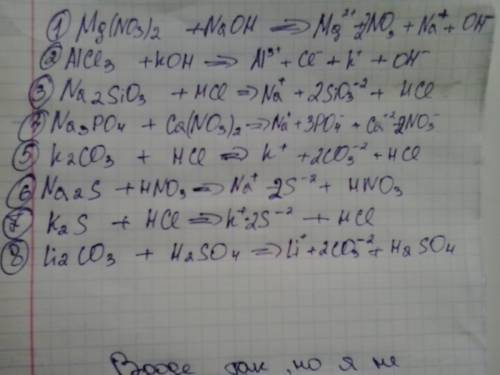 ① Mg(NO3)2 + NaOH ⇒ Mg²⁺ + 2NO3 + Na⁺ + OH⁻
② AlCl3 + KOH ⇒ Al³⁺ + Cl⁻ + K⁺ + OH⁻
③ Na2SiO3 + HCl ⇒ Na⁺ + 2SiO3⁻² + HCl
④ Na3PO4 + Ca(NO3)2 ⇒ Na⁺ + 3PO4⁻ + Ca⁻² 2NO3⁻
⑤ K2CO3 + HCl ⇒ K⁺ + 2CO3⁻² + HCl
⑥ Na2S + HNO3 ⇒ Na⁺ 2S⁻² + HNO3
⑦ K2S + HCl ⇒ K⁺ 2S⁻² + HCl
⑧ Li2CO3 + H2SO4 ⇒ Li⁺ + 2CO3⁻² + H2SO4
так, но я не